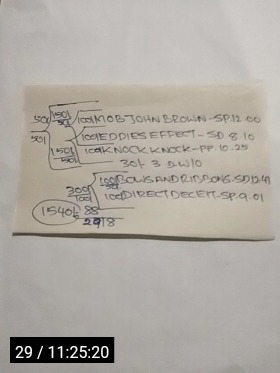 150/-
50/- 50/- 100/MOB JOHN BROWN-SP.12.00
50/- 100/EDDIES EFFECT-SD 8.10
150/- 100/KNOCK KNOCK-PP.10.25
50/- 30/- 3 D.W/O
300/- 100/BOWS AND RIBBONS.SD.12.
100/- 100/DIRECT DECEIT-SP.9.01
1540/- 88
2918
29 / 11:25:20